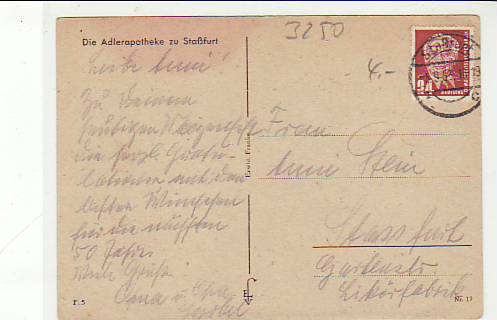 3250
Die Adlerapotheke zu Staßfurt
4.-
24
Liebe Anni!
Zu Deinem
heutigen Wiegenfest
die herzl. Gratu-
lationen mit den
besten Wünschen
für die nächsten
50 Jahre.
Viele Grüße
Frau
Anni Stein
Stassfurt
Gartenstr.
Likörfabrik
F. 5
Nr. 17